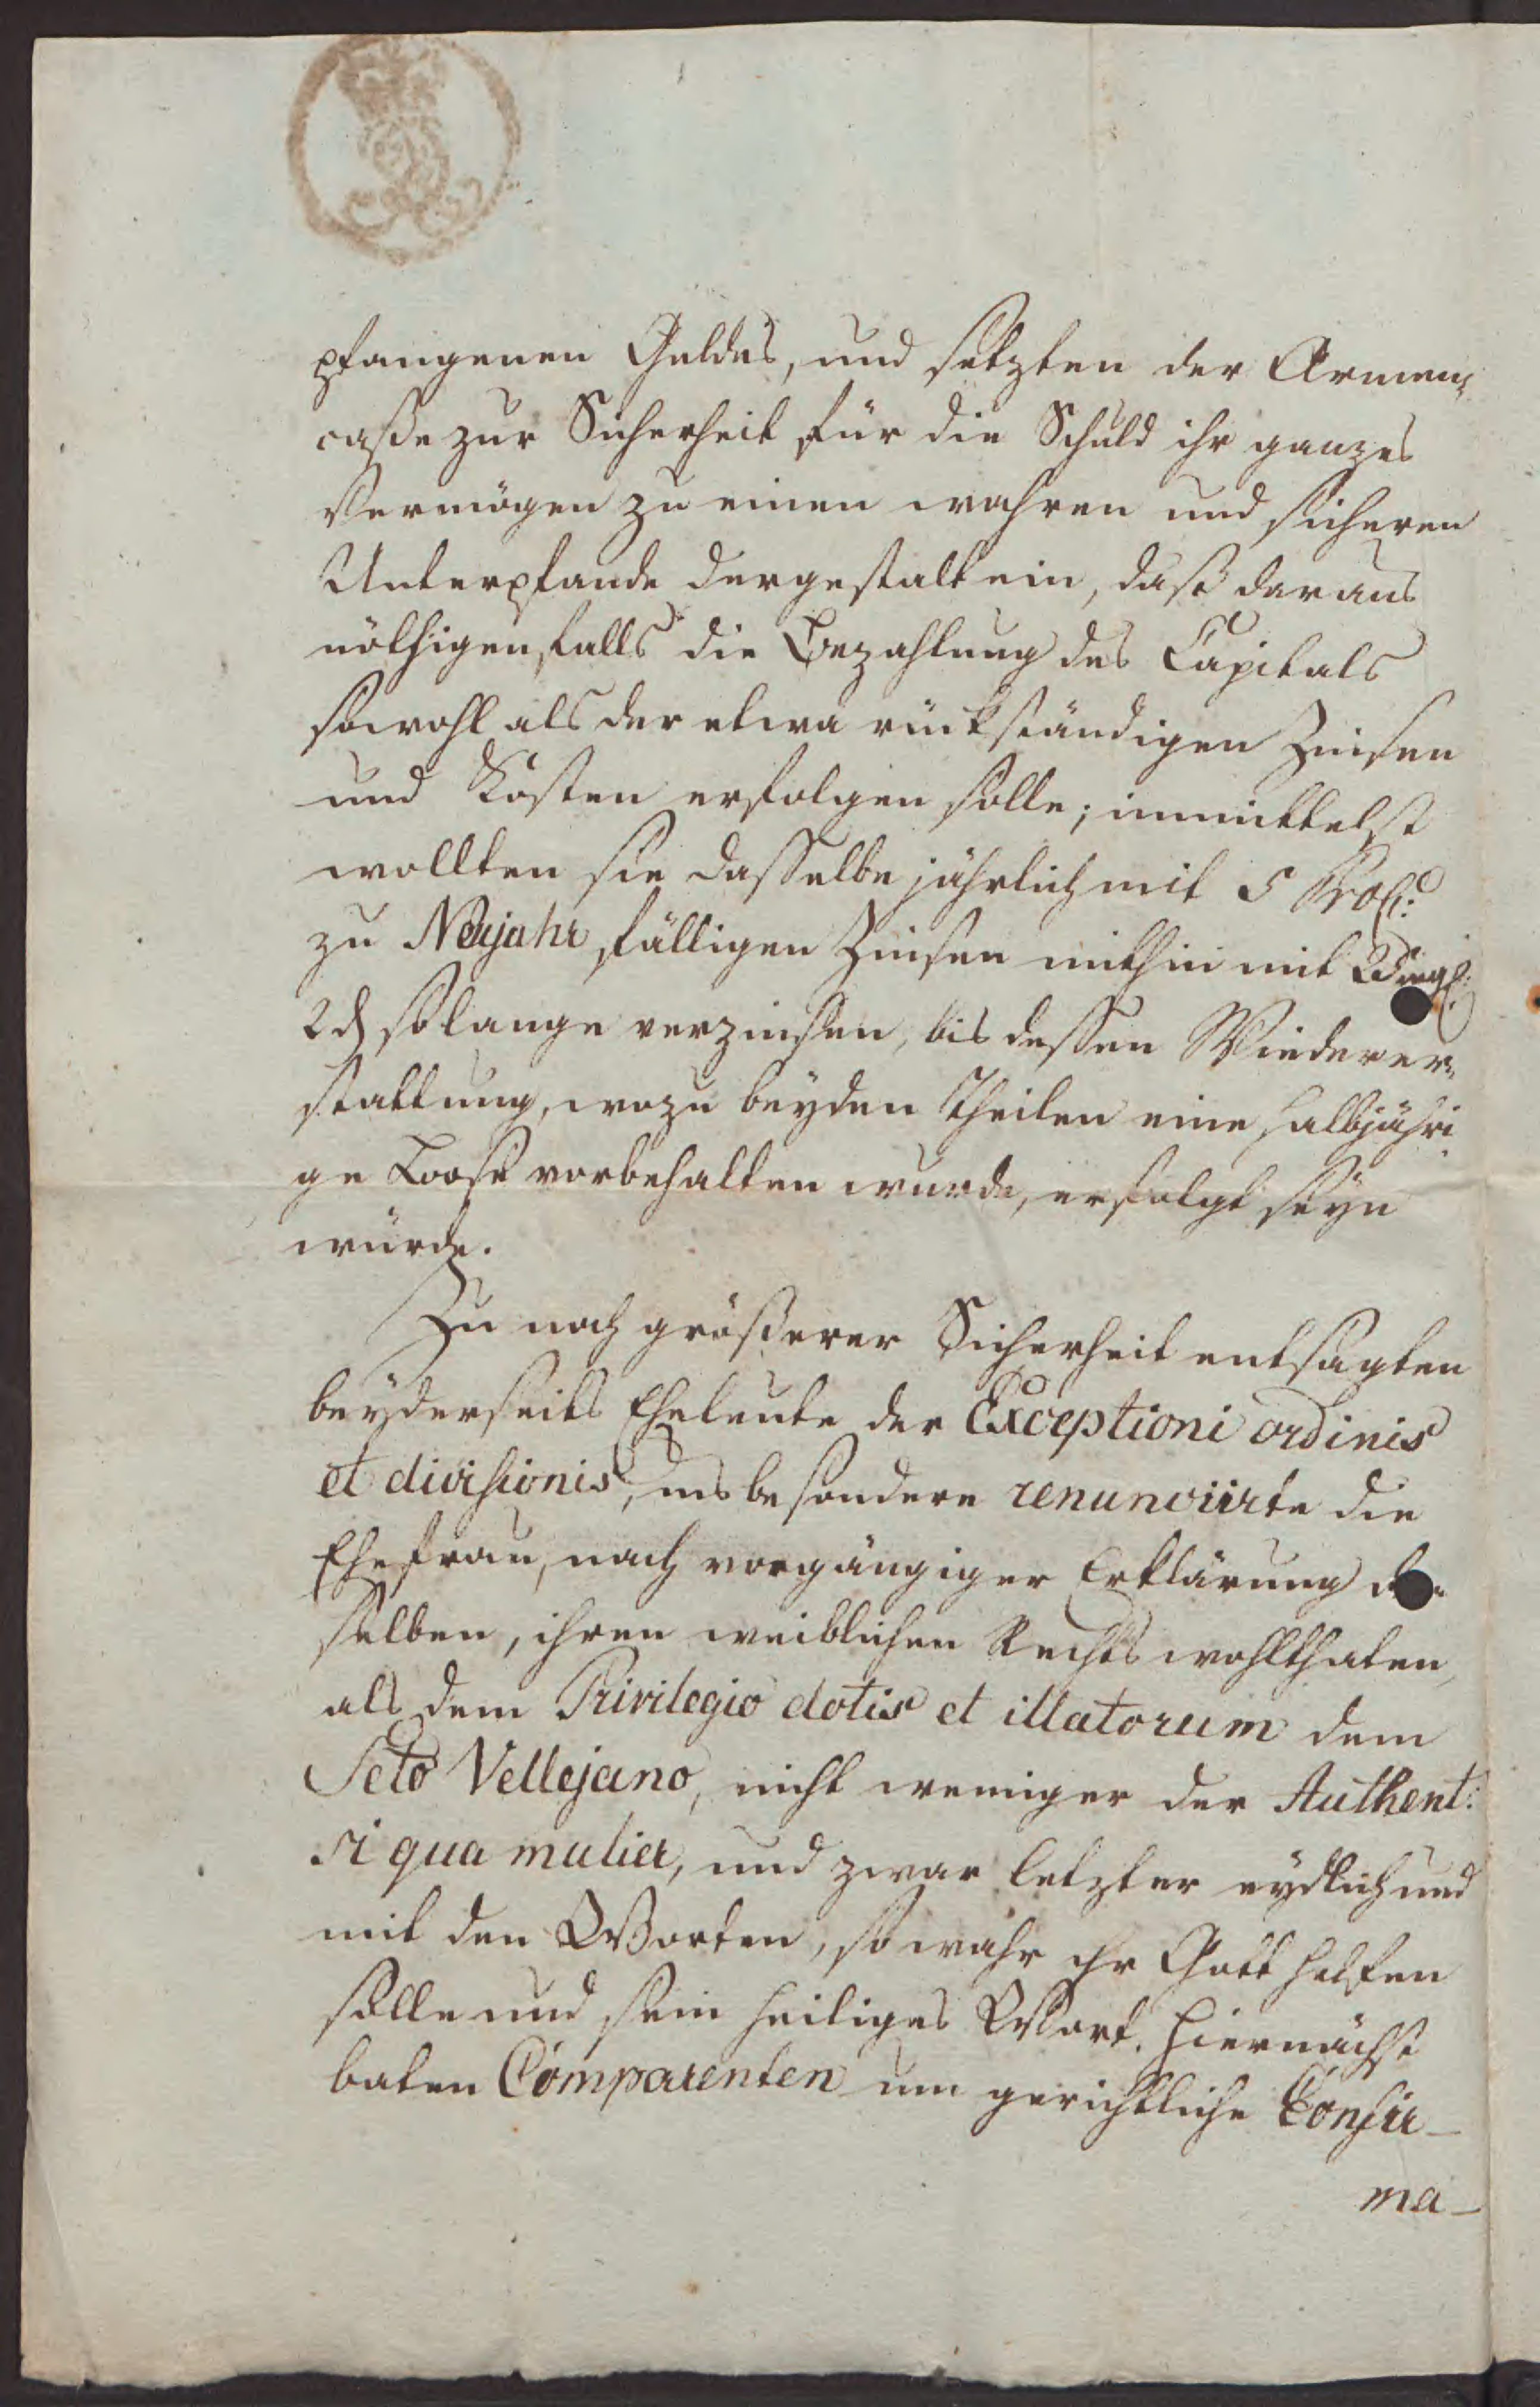 pfangenen Geldes, und setzten der Armen-
casse zur Sicherheit für die Schuld ihr ganzes
Vermögen zu einen wahren und sicheren
Unterpfande dergestalt ein, daß daraus
nöthigenfalls die Bezahlung des Capitals
sowohl als der etwa rückständigen Zinsen
und Kosten erfolgen solle; inmittelst
wollten sie dasselbe jährlich mit 5 ProC:
zu Neujahr fälligen Zinsen mithin mit
2 d solange verzinsen, bis dessen Wiederer-
stattung, wozu beyden Theilen eine halbjähri
ge Loose vorbehalten wurde, erfolgt seyn
würde.
Zu noch größerer Sicherheit entsagten
beyderseits Eheleute der Exceptioni ordinis
et divisionis, insbesondere renunciirte die
Ehefrau, nach vorgängiger Erklärung
selben, ihren weiblichen Rechtswohlthaten,
als dem Privilegio dotis et illatorum dem
Scto Vellejano, nicht weniger der Authent:
si qua mulier, und zwar letzter eydlich und
mit den Worten, so wahr ihr Gott helfen
solle und sein heiliges Wort. Hiernächst
baten Comparenten um gerichtliche Confir-
ma-